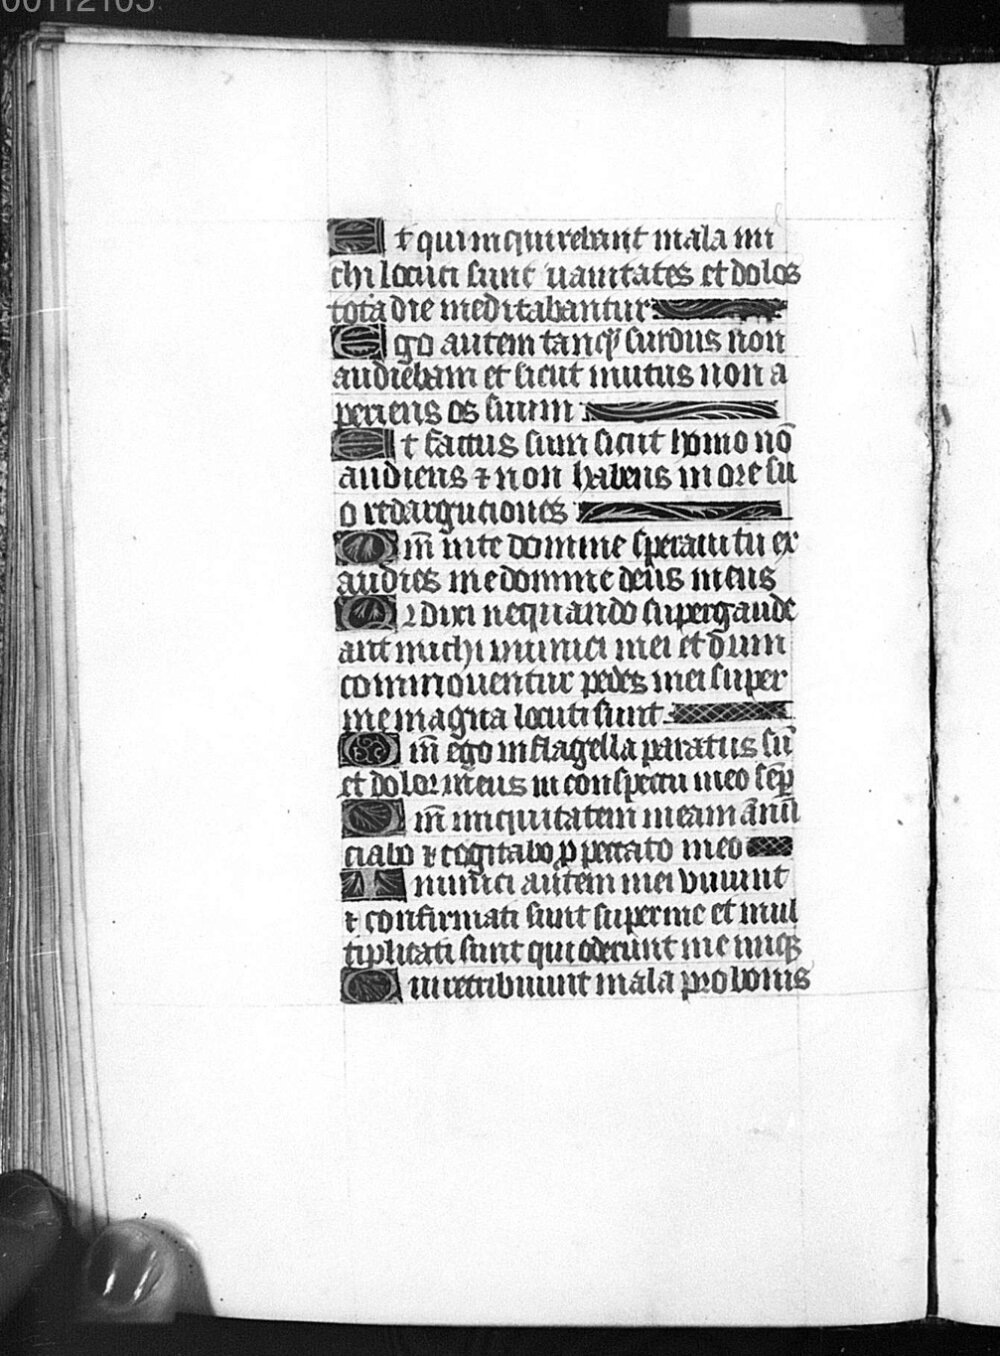 00112105
Et qui inquirebant mala mi
chi locuti sunt vanitates et dolos
tota die meditabantur
Ego autem tanqͣ surdus non
audiebam et sicut mutus non a
periens os suum
Et factus sum sicut homo nō
audiens ⁊ non habens in ore su
o redargutiones
Qm̄ in te domine speraui tu ex
audies me domine deus meus
Qꝛ dixi nequando supergaude
ant michi inimici mei et dum
commouentur pedes mei super
me magna locuti sunt
Qm̄ ego in flagella paratus sū
et dolor meus in conspectu meo semꝑ
Qm̄ iniquitatem meam ānū
ciabo ⁊ cogitabo ꝑ peccato meo
Inimici autem mei viuunt
⁊ confirmati sunt super me et mul
tiplicati sunt qui oderunt me iniqꝫ
Qui retribuunt mala pro bonis